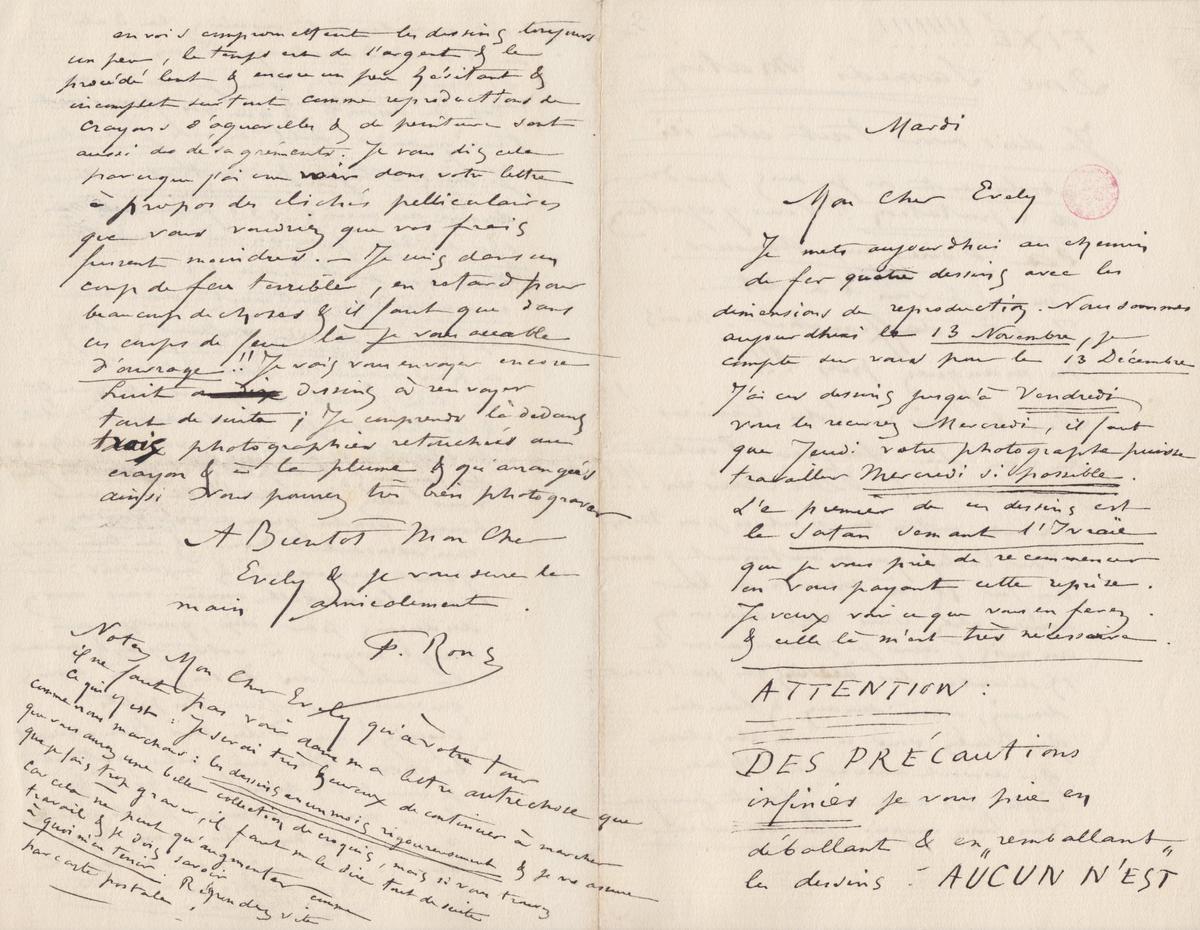 Mardi
Mon Cher Evely
Je mets aujourdhui au chemin
de fer quatre dessins avec les
dimensions de reproduction. Nous sommes
aujourdhui le 13 Novembre, je
compte sur vous pour le 13 Décembre
J'ai ces dessins jusqu'à Vendredi
vous les recevrez Mercredi, il faut
que Jeudi votre photographe puisse
travailler Mercredi si possible.
Le premier de ces dessins est
le Satan semant l'Ivraie
que je vous prie de recommencer
en vous payant cette reprise.
Je veux voir ce que vous en ferez
& celle là m'est très nécessaire.
ATTENTION :
DES PRÉCAUTIONS
infinies je vous prie en
déballant & en "remballant"
les dessins : AUCUN N'EST
envois compromettent les dessins toujours
un peu, le temps est de l'argent & le
procédé lent & encore un peu hésitant &
incomplet surtout comme reproductions de
crayons d'aquarelles & de peinture sont
aussi des désagréments. Je vous dis cela
parceque j'ai cru voir dans votre lettre
à propos des clichés pelliculaires
que vous voudriez que vos frais
fussent moindres. — Je suis dans un
coup de feu terrible, en retard pour
beaucoup de choses & il faut que dans
ces coups de feu là je vous accable
d'ouvrage !! Je vais vous envoyer encore
huit ou dix dessins à renvoyer
tout de suite ; Je comprends là dedans
trois photographies retouchées au
crayon & à la plume & qu'arrangés
ainsi vous pourrez très bien photograver
A Bientot Mon Cher
Evely & je vous serre la
main amicalement.
F. Rops
Notez Mon Cher Evely qu'à votre tour
il ne faut pas voir dans ma lettre autre chose que
ce qui y est : Je serai très heureux de continuer à marcher
comme nous marchons : les dessins en un mois rigoureusement & je vous assure
que vous aurez une belle collection de croquis, mais si vous trouvez
que je fais trop graver, il faut me le dire tout de suite
car cela ne peut qu'augmenter comme
travail & je dois savoir
à quoi m'en tenir. Répondez vite
par carte postale !